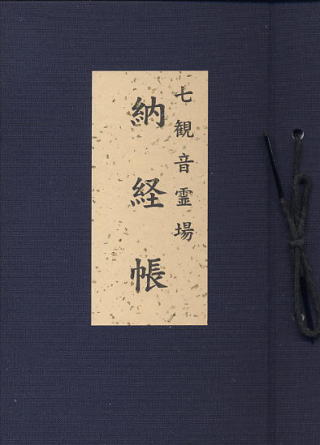 七観音霊場
納経帳